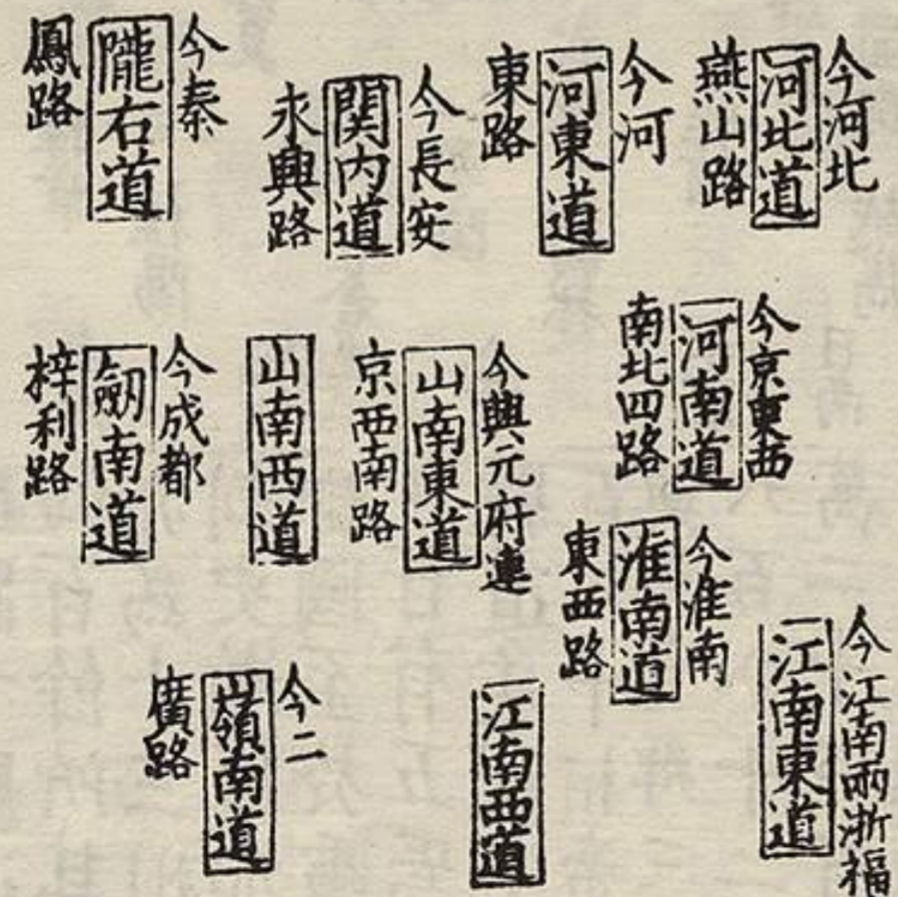 今河北
河北道
燕山路
今河
河東道
東路
今長安
関内道
永興路
今秦
隴右道
鳳路
今京東西
河南道
南北四路
今興元府連
山南東道
京西南路
山南西道
今成都
劔南道
梓利路
今淮南
淮南道
東西路
今江南兩浙福
江南東道
江南西道
今二
嶺南道
廣路